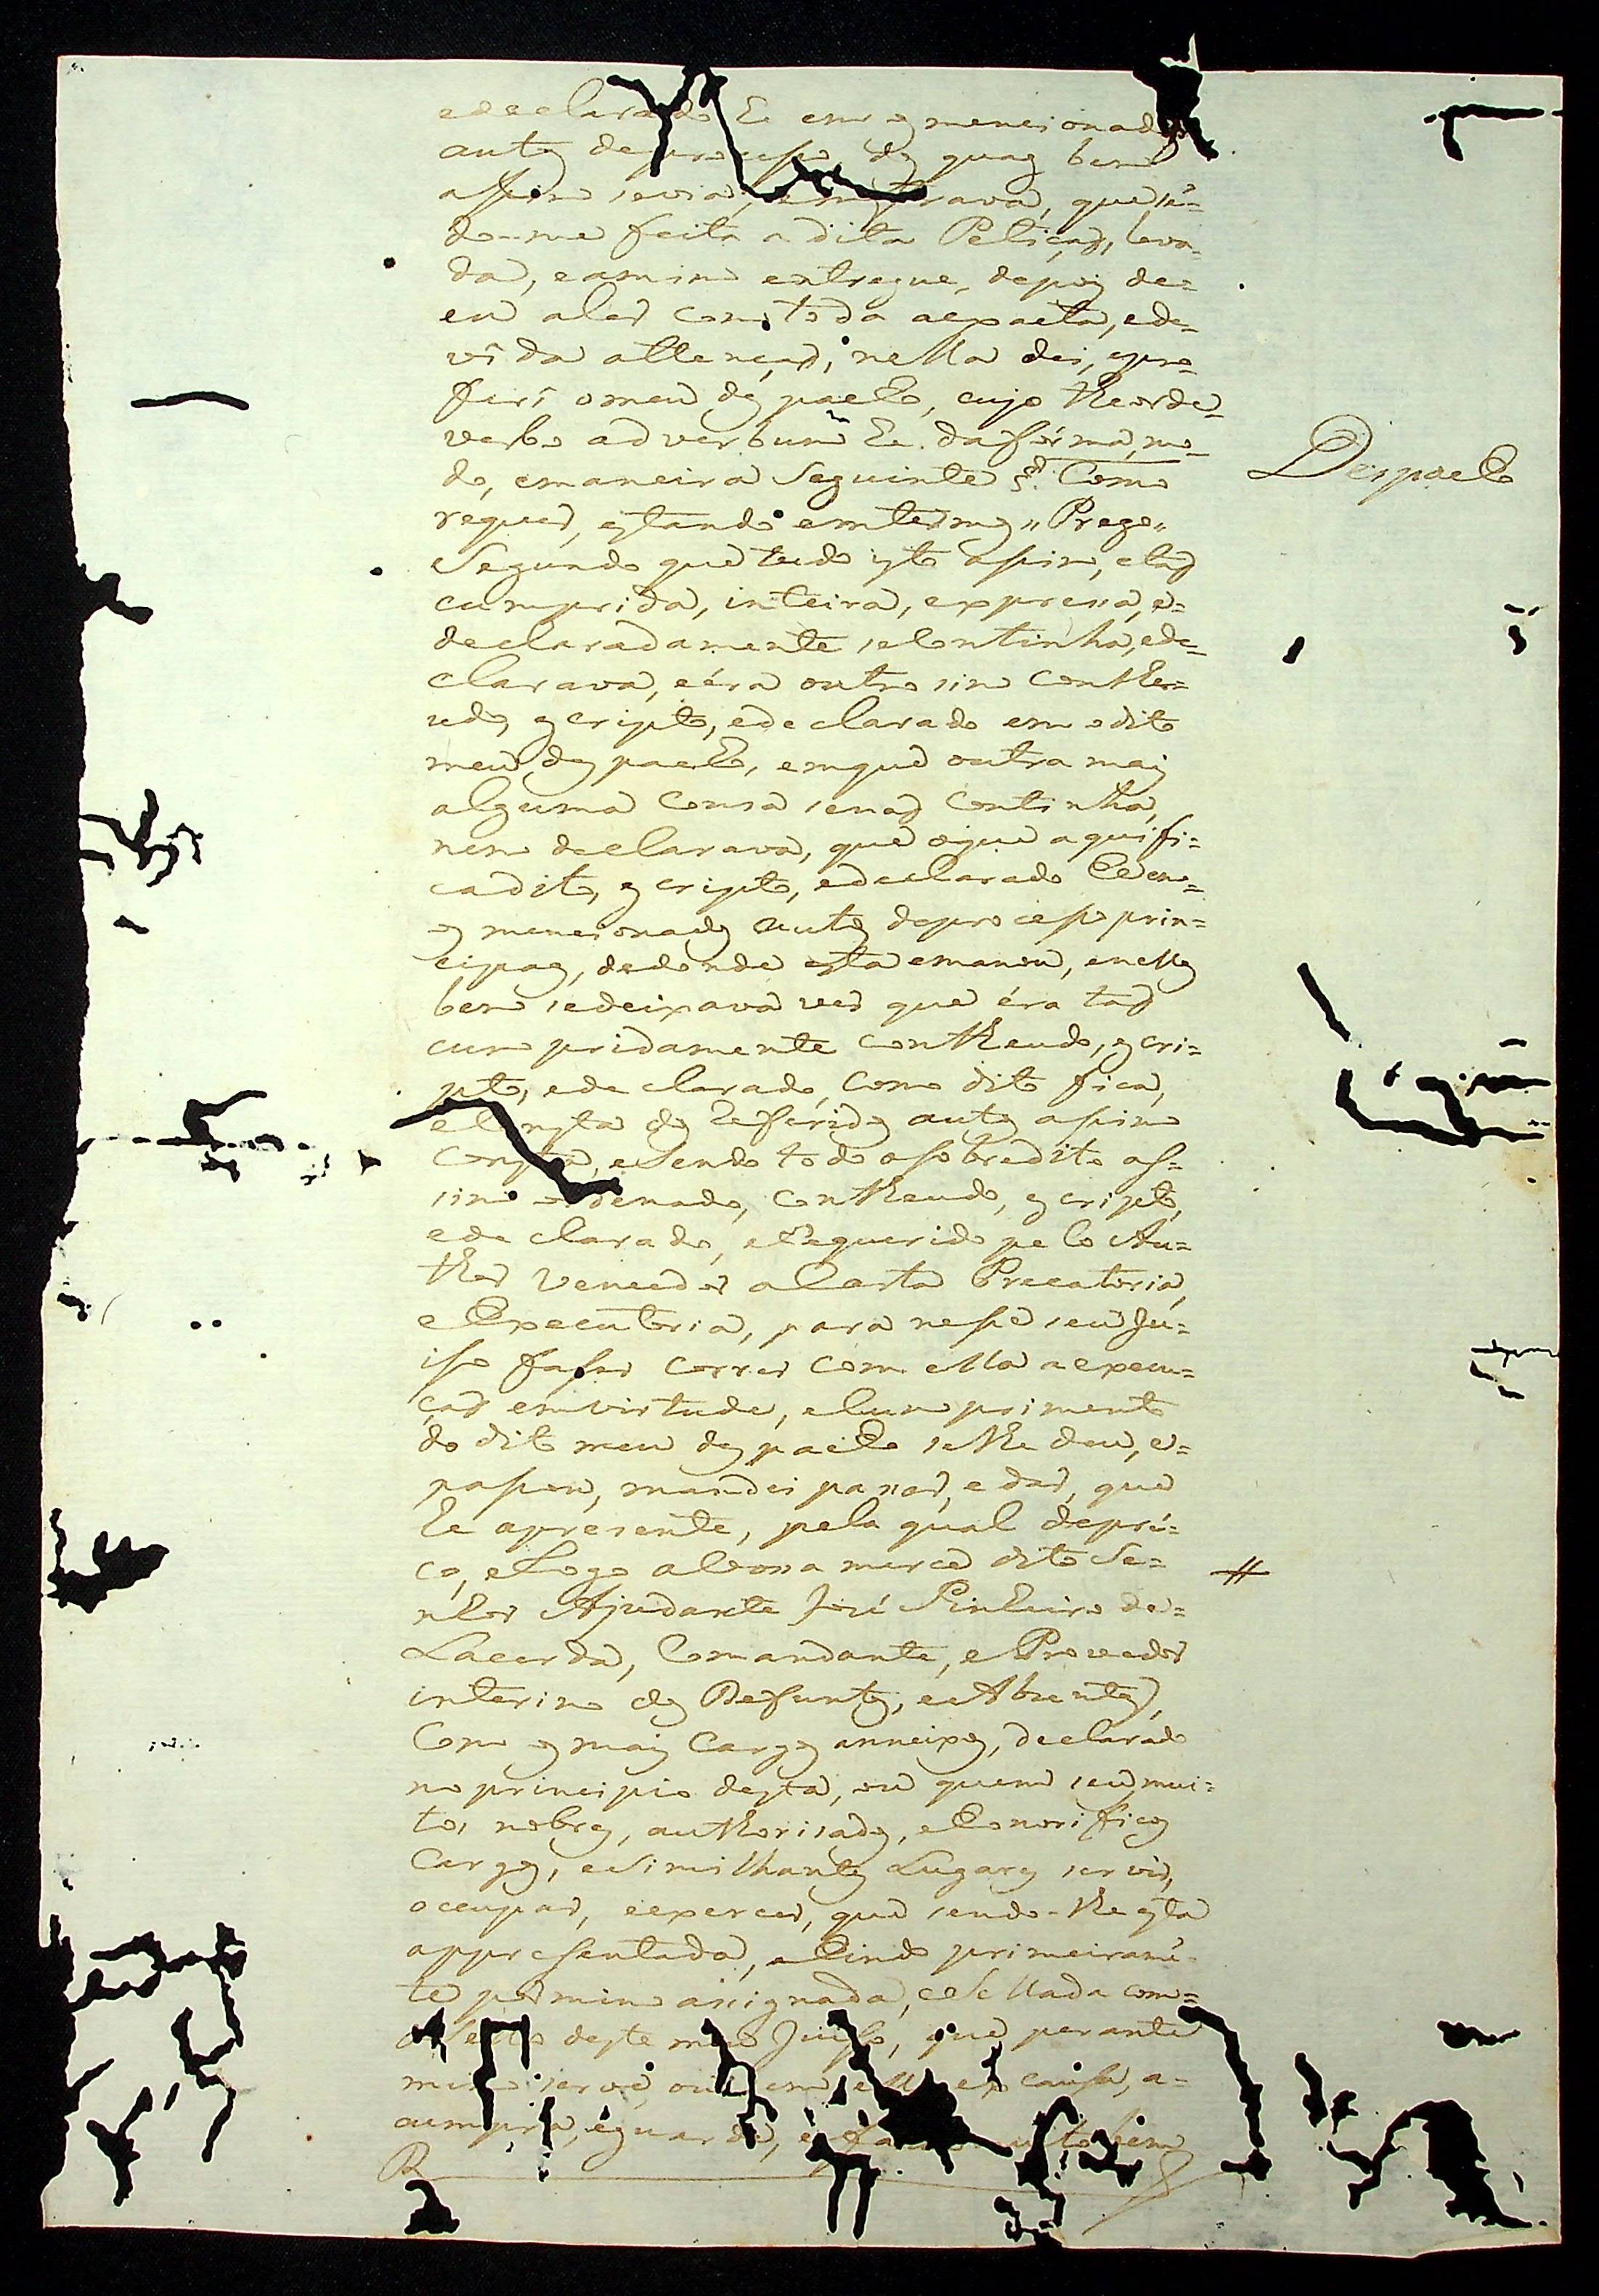 edeclarado E em os mencionados
autos deprocesso, dos quaes bem
assim sevia, emostrava, quesẽ=
do-me feita a dita Petiçaõ, leva-
da, eamim entregue, depois de=
eu aler com toda aexacta, ede-
vida attençaõ, nella dei, epro-
ferî omeu despacho, cujo theorde-
verbo adverbum he dafórma, mo-
do, emaneira Seguinte Como
requer, estando emtermos „ Prego „
Despacho
Segundo que tudo isto assim, etaõ
cumprida, inteira, expressa, e=
declaradamente seContinha, ede-
clarava, eéra outro sim Conthe=
udo, escripto, edeclarado em odito
meu despacho, emque outra mais
alguma Cousa senaõ Continha,
nem declarava, que oque aquifi=
cadito, escripto, edeclarado Eem-
os mencionados Autos deprocesso prin=
cipaes, dedonde esta emanou, enelles
bem sedeixava ver que éra taõ
cumpridamente contheudo, escri=
pto, edeclarado, como dito fica,
eComsta dos Referidos autos assim
Consta, eSendo todo osobredito as=
sim ordenado, Contheudo, escripto,
edeclarado, eRequerido pelo Au=
thor Vencedor aCarta Precatoria,
eExecutoria, para nesse seu Ju=
iso faser Correr Com ella aexecu=
çaõ emvirtude, eCumprimento
do dito meu despacho selhe deu, e=
passou, mandei passar, e dar, que
he apresente, pela qual depré=
co, eRogo aVossa mercê dito Se=
nhor Ajudante José Pinheiro de=
Lacerda, Comandante, eProvedor
interino dos Defuntos, eeAbzentes,
Com os mais Cargos anneixos, declarado
no principio desta, ou quem seus mui=
tos, nobres, authorisados, ehonorificos
Cargos, eSimilhantes Lugares servir,
occupar, eexercer, que sendo-lhe esta
appresentada, ehindo primeiramẽ=
te por mim assignada, eSellada com=
oSello deste meu Juiso, que perante
mim serve, ou sem elle ex causa, a=
cumpra, eguarde, e faça muito bem